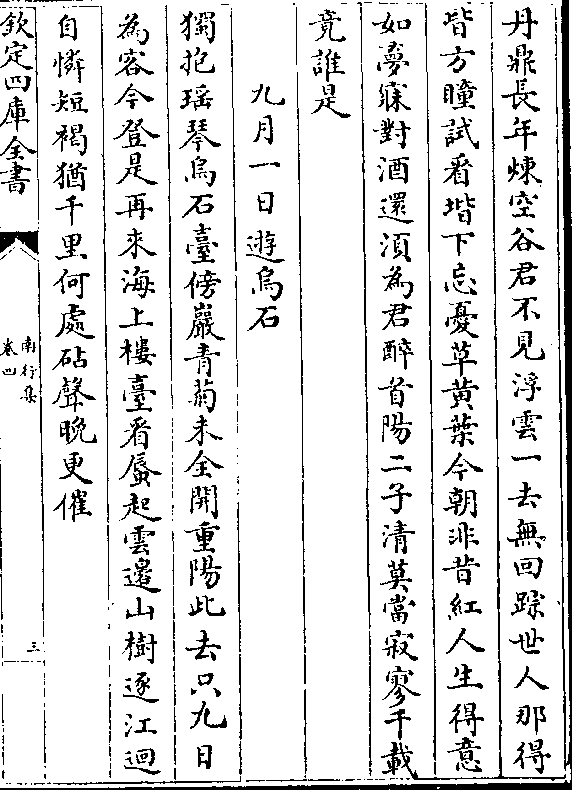 丹鼎長年煉空谷君不見浮雲一去無回踪世人那得
皆方瞳試看堦下忘憂草黄葉今朝非昔紅人生得意
如夢寐對酒還須為君醉首陽二子清莫當寂寥千載
竟誰是
九月一日遊烏石
獨抱瑶琴烏石臺傍巖青菊未全開重陽此去只九日
為客今登是再來海上樓臺看蜃起雲邊山樹逐江迴
自憐短褐猶千里何處砧聲晚更催
欽定四庫全書
南行集
卷四
三